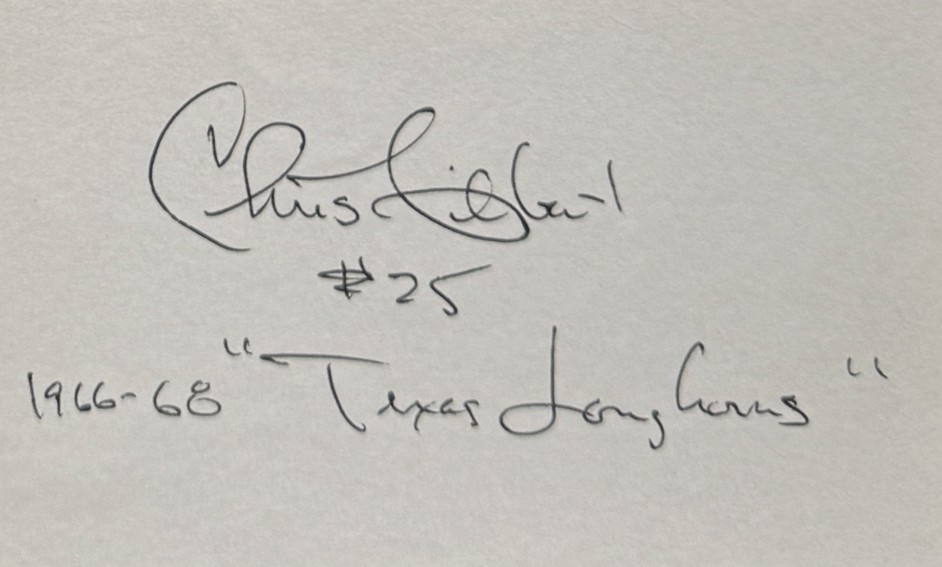 Chris Gilbert
#25
1966-68 "Texas Longhorns"